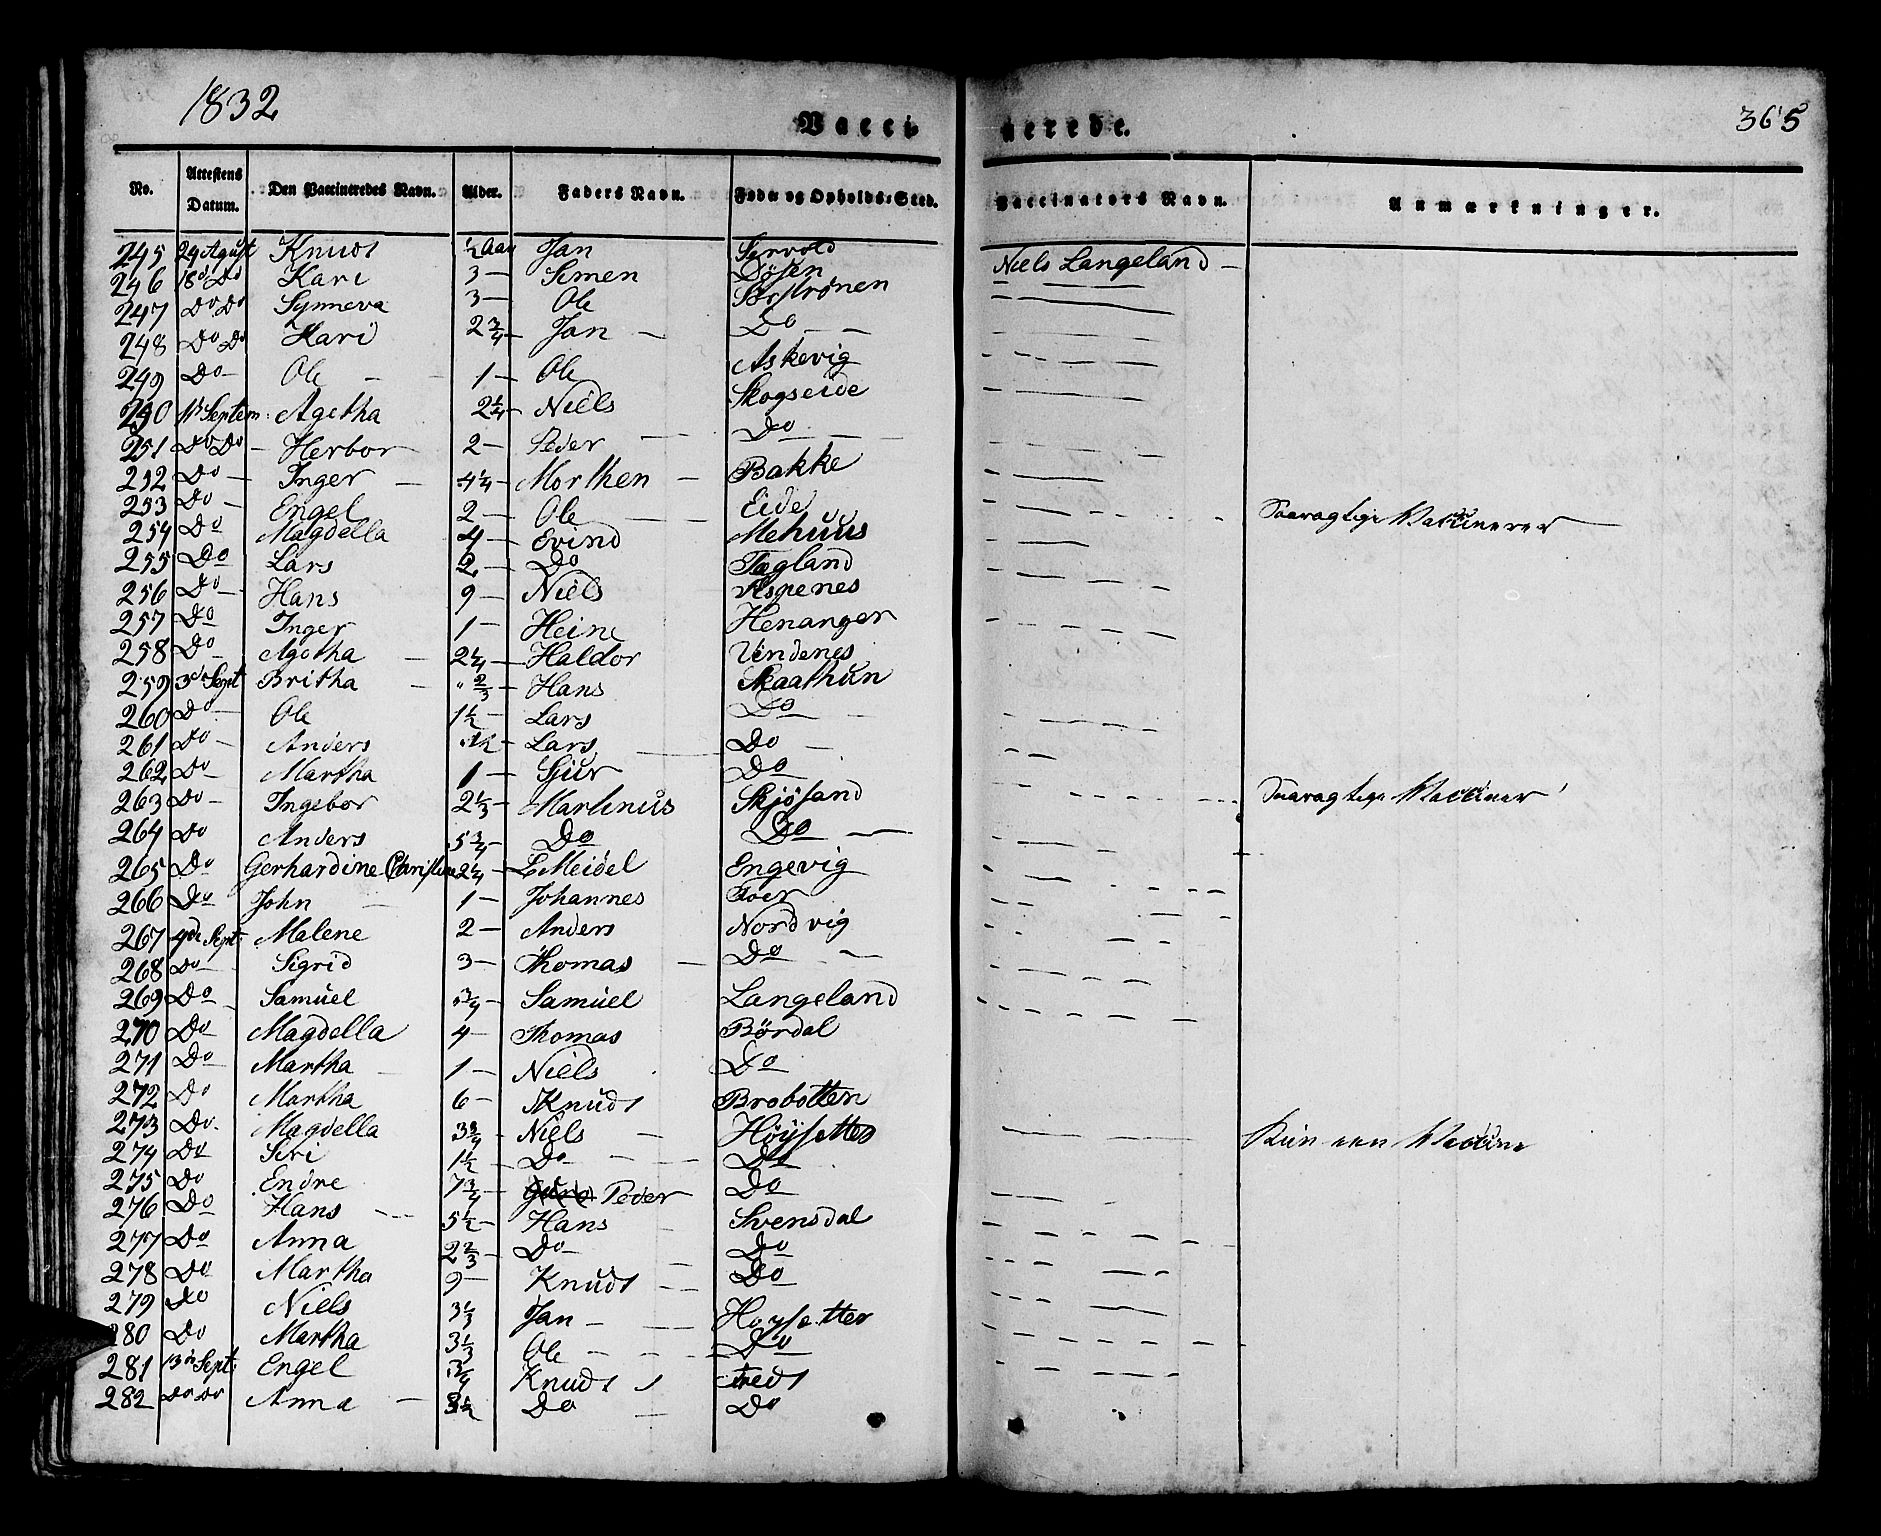 1832
365
Vacci nerede.
No. Attestens Datum. Den Vaccineredes Navn. Alder. Faders Navn. Føde og Opholds-Sted. Vaccinators Navn. Anmærkninger.
245 29 Agust Knudt ½ Aar Jan Niels Langeland -
246 18d Do Kari 3 - Simen Døsen
247 Do Do Synneva 3 - Ole Sørstrønen
248 Do Do Kari 2¾ - Jan - Do - -
249 Do - Ole - 1 - Ole Askevig
250 1st Septem: Agetha 2¼ - Niels Skogseide
251 Do Do - Herbor 2 - Peder - Do
252 Do - Inger - 4¼ - Morthen - Bakke
253 Do - Engel 2 - Ole - - Eide
254 Do Magdella 4 - Evind Mehuus
255 Do Lars 2 - Do Tøgland
256 Do - Hans 9 - Niels Aspenes
257 Do Inger 1 - Heine Henanger
258 Do Agotha - 2¼ - Haldor Vindenes
259 3d Sept Britha - " ⅔ - Hans Skaathun
260 Do - Ole 1½ - Lars Do
261 Do - Anders 1½ - Lars - Do -
262 Do - Martha 1 - Sjur Do
263 Do - Ingebor 2⅓ - Martinus Skjøsand
264 Do Anders 5¾ - Do Do -
265 Do Gerhardine Christine 2¼ - L Meidel Engevig
266 Do John - 1 - Johannes
267 4de Sept: Malene 2 - Anders Nordvig
268 Do - Sigrid 3 - Thomas - Do -
269 Do Samuel ¾ - Samuel Langeland
270 Do Magdella 4 - Thomas Børdal
271 Do Martha - 1 - Niels Do
272 Do Martha 6 - Knudt Brobotten
273 Do. Magdella 3¾ - Niels - Høysetter Kun een Vaccine
274 Do Siri 1½ - Do - - Do
275 Do Endre 7¾ - Peder Do
276 Do Hans - 5½ - Hans Svensdal
277 Do Anna 2⅔ - Do - Do
278 Do Martha 9 - Knudt - Do
279 Do Niels 3⅓ Jan - - Høysetter
280 Do Martha 3⅓ Ole - - Do
281 13de Sept: Engel ¾ Knudt
282 Do Do Anna - 3½ Do - Do